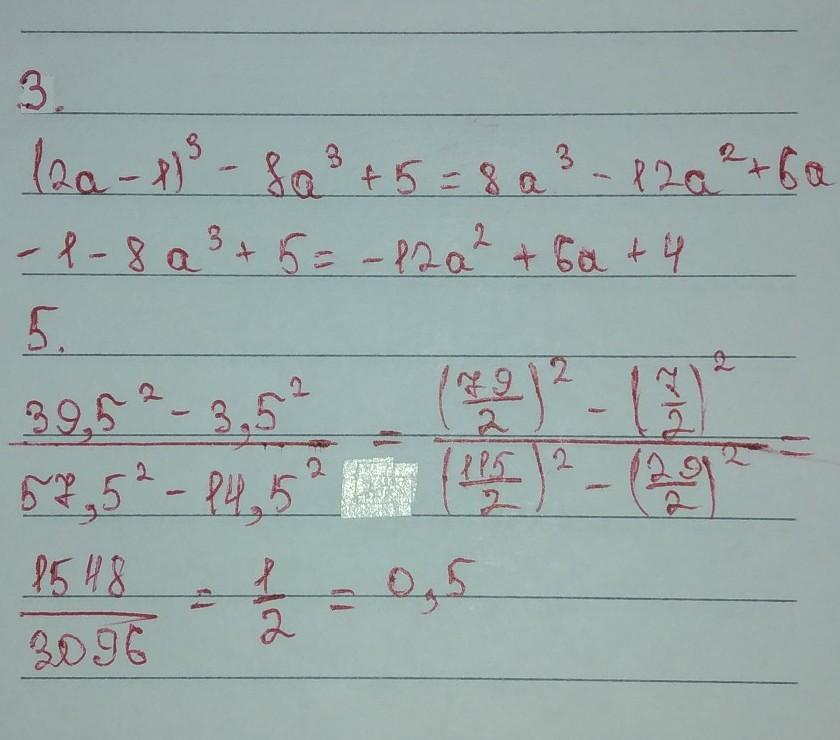 3.
(2a - 1)³ - 8a³ + 5 = 8a³ - 12a² + 6a
- 1 - 8a³ + 5 = -12a² + 6a + 4
5.
(39,5² - 3,5²)/(57,5² - 14,5²) = ((79/2)² - (7/2)²)/((115/2)² - (29/2)²) =
1548/3096 = 1/2 = 0,5